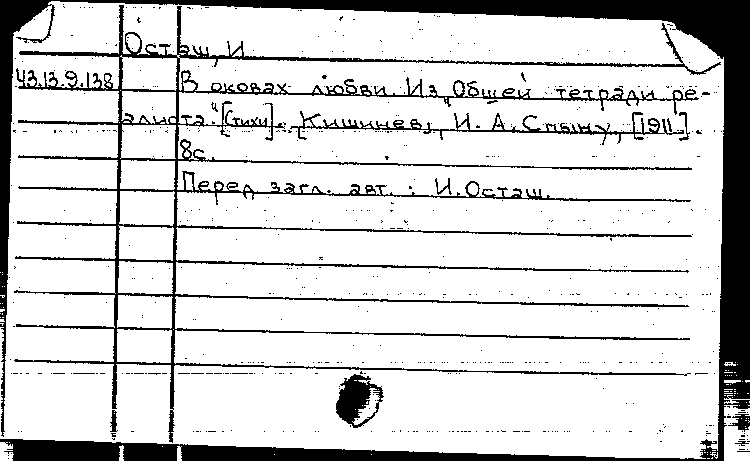 Осташ, И.
43.13.9.138 В оковах любви. Из „Общей тетради ре-
алиста“. [Стихи]. [Кишинев], И. А. Спыну, [1911].
8с.
Перед загл. авт.: И. Осташ.